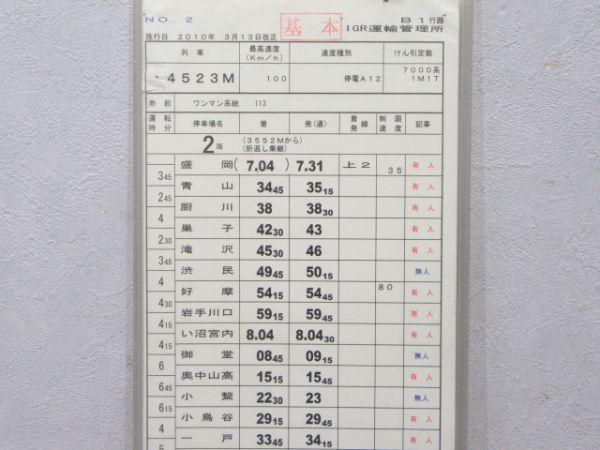 NO. 2 基本 B1行路
施行日 2010年 3月13日改正 IGR運輸管理所
列車 最高速度(Km/h) 速度種別 けん引定数
4523M 100 停電A12 7000系 1M1T
発前 ワンマン系統 113
運転時分 停車場名 着 発(通) 着発線 制限速度 記事
2両 (3552Mから) (折返し乗継)
盛岡 (7.04) 7.31 上2 35 有人
345
青山 3445 3515 有人
245
厨川 38 3830 有人
4
巣子 4230 43 有人
230
滝沢 4530 46 有人
345
渋民 4945 5015 無人
4
好摩 5415 5445 80 有人
430
岩手川口 5915 5945 有人
415
い沼宮内 8.04 8.0430 有人
415
御堂 0845 0915 無人
6
奥中山高 1515 1545 有人
645
小繋 2230 23 無人
615
小鳥谷 2915 2945 有人
4
一戸 3345 3415 有人